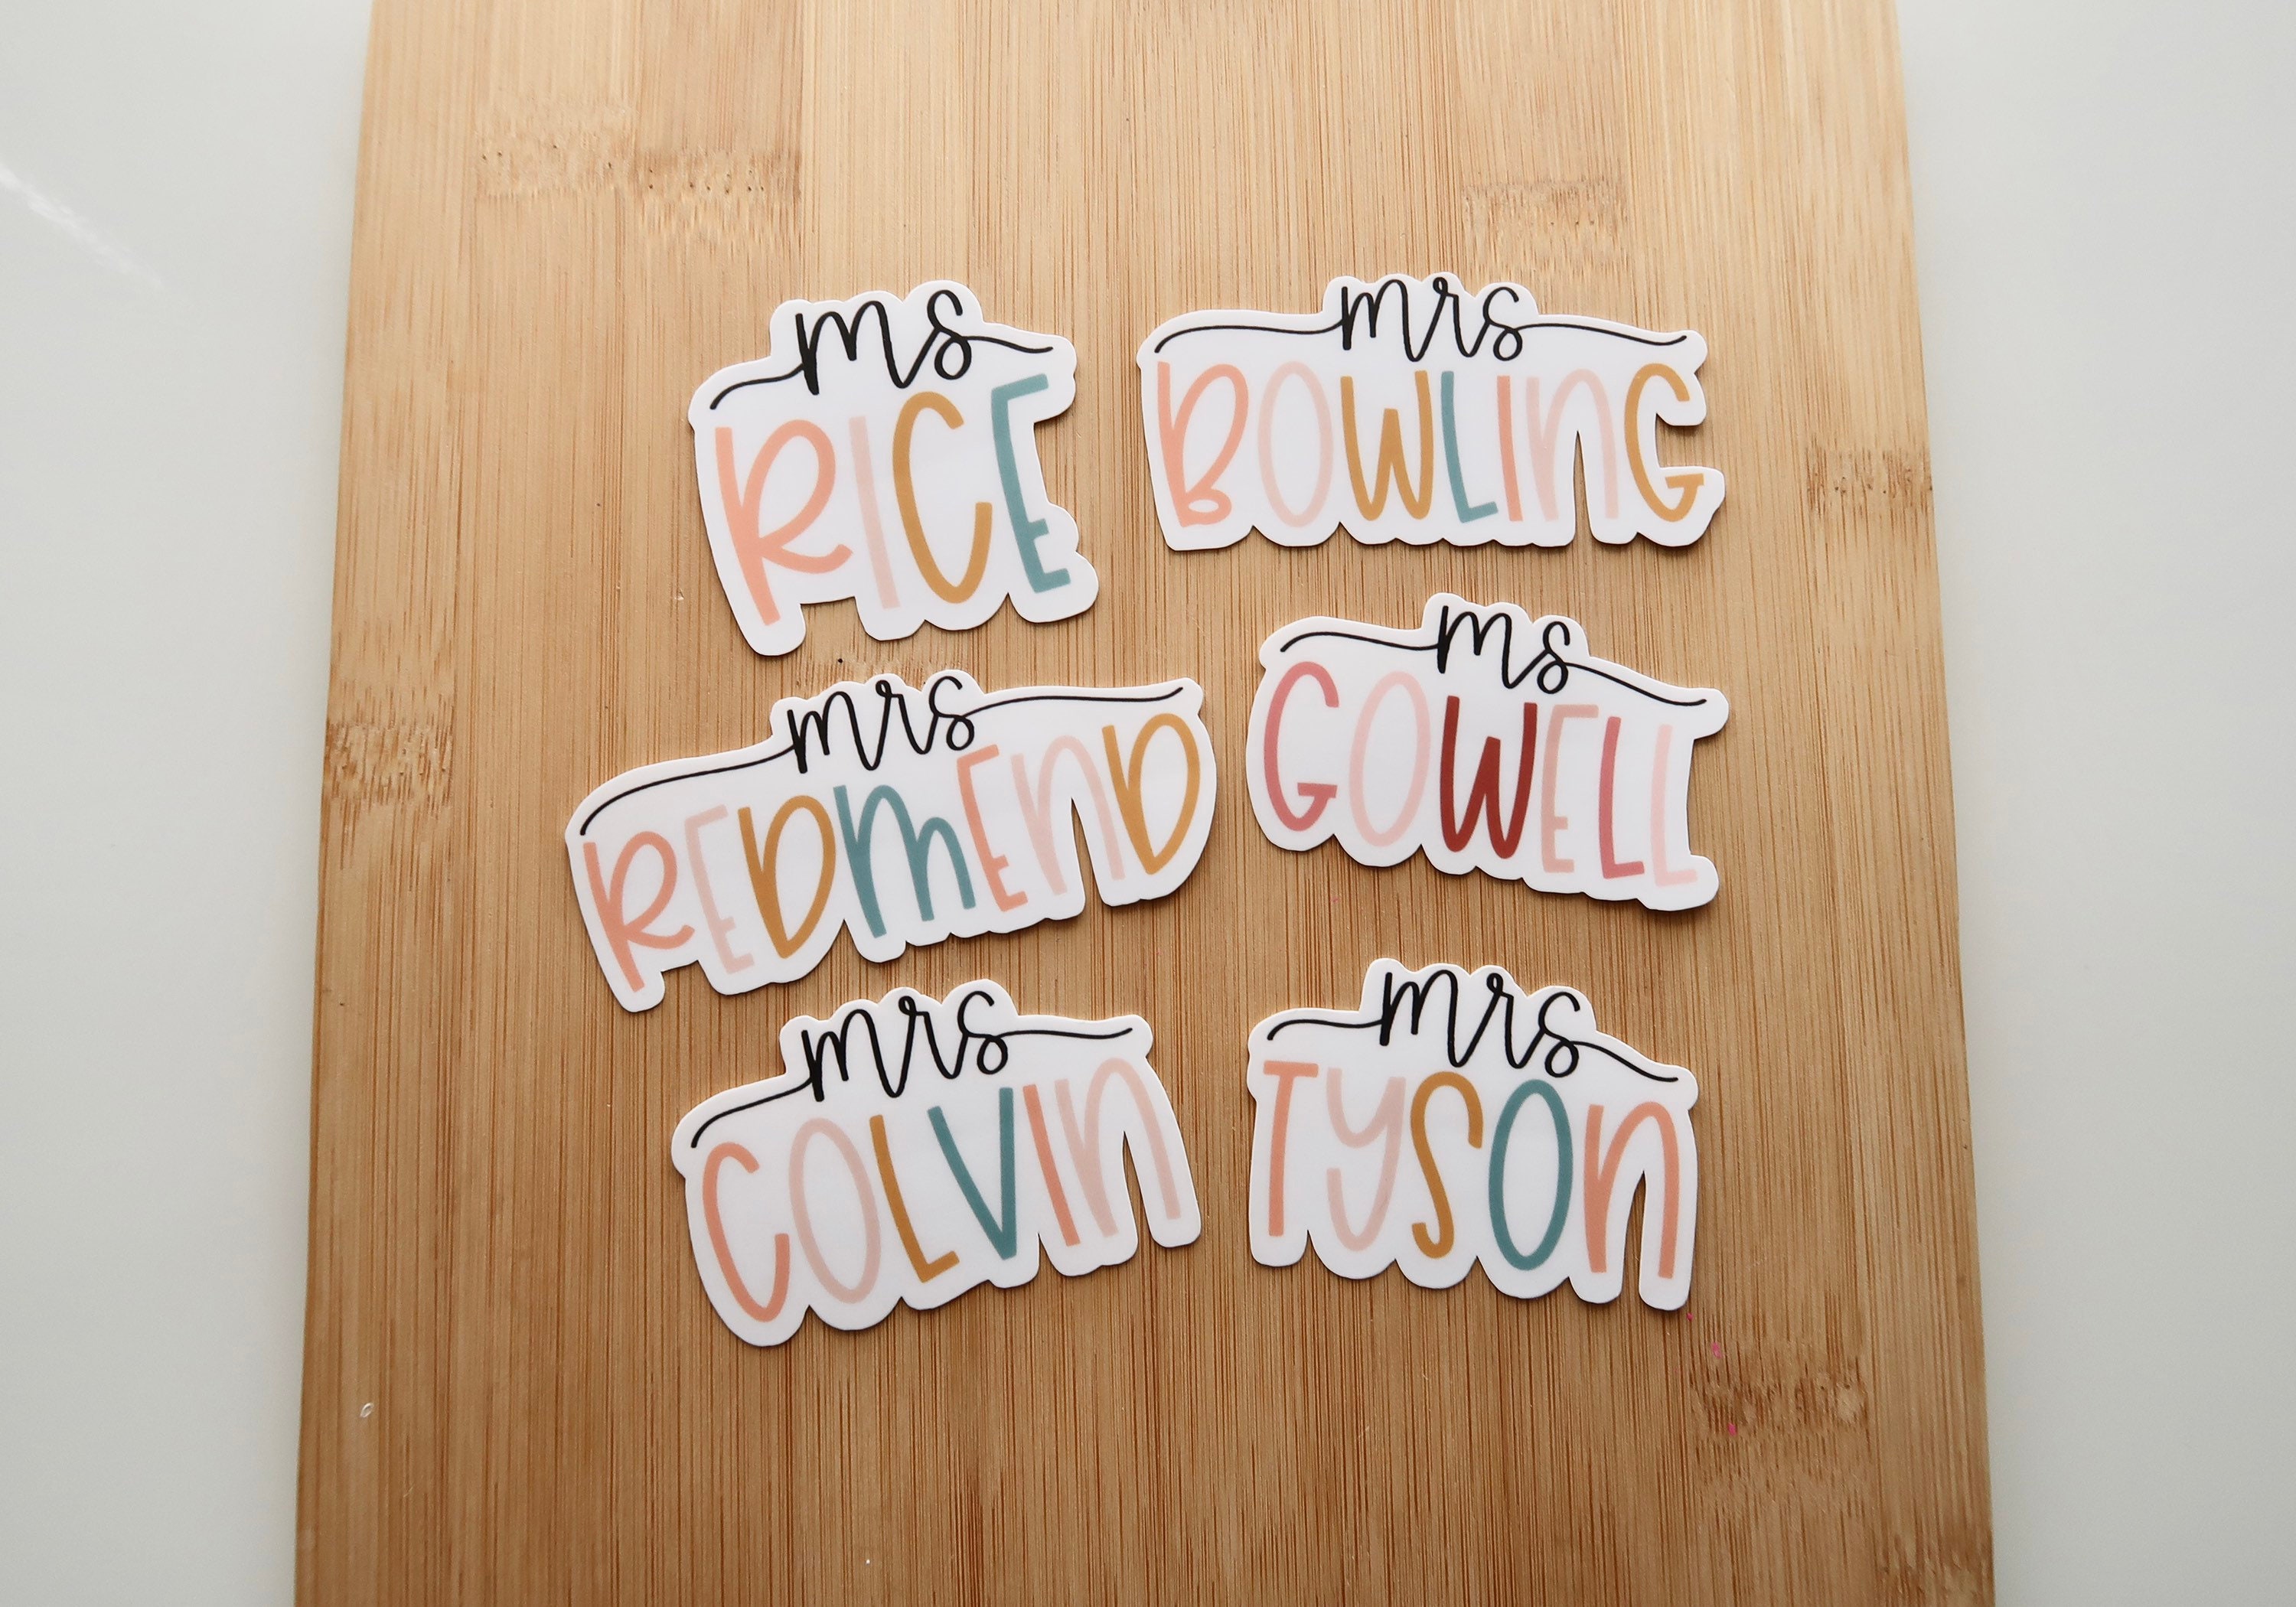 ms
RICE
mrs
BOWLING
mrs
REDMEND
ms
GOWELL
mrs
COLVIN
mrs
TYSON